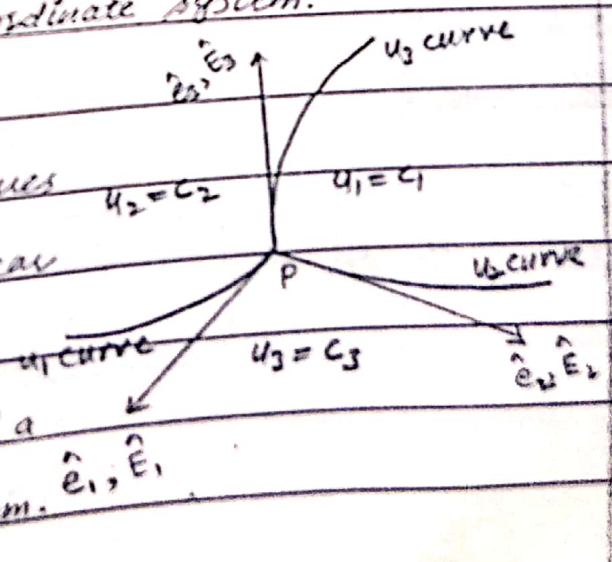 rdinate system.
u₃ curve
ê₃, Ê₃
ues
u₂ = c₂
u₁ = c₁
u₂ curve
P
u₁ curve
u₃ = c₃
ê₂, Ê₂
a
ê₁, Ê₁
m.